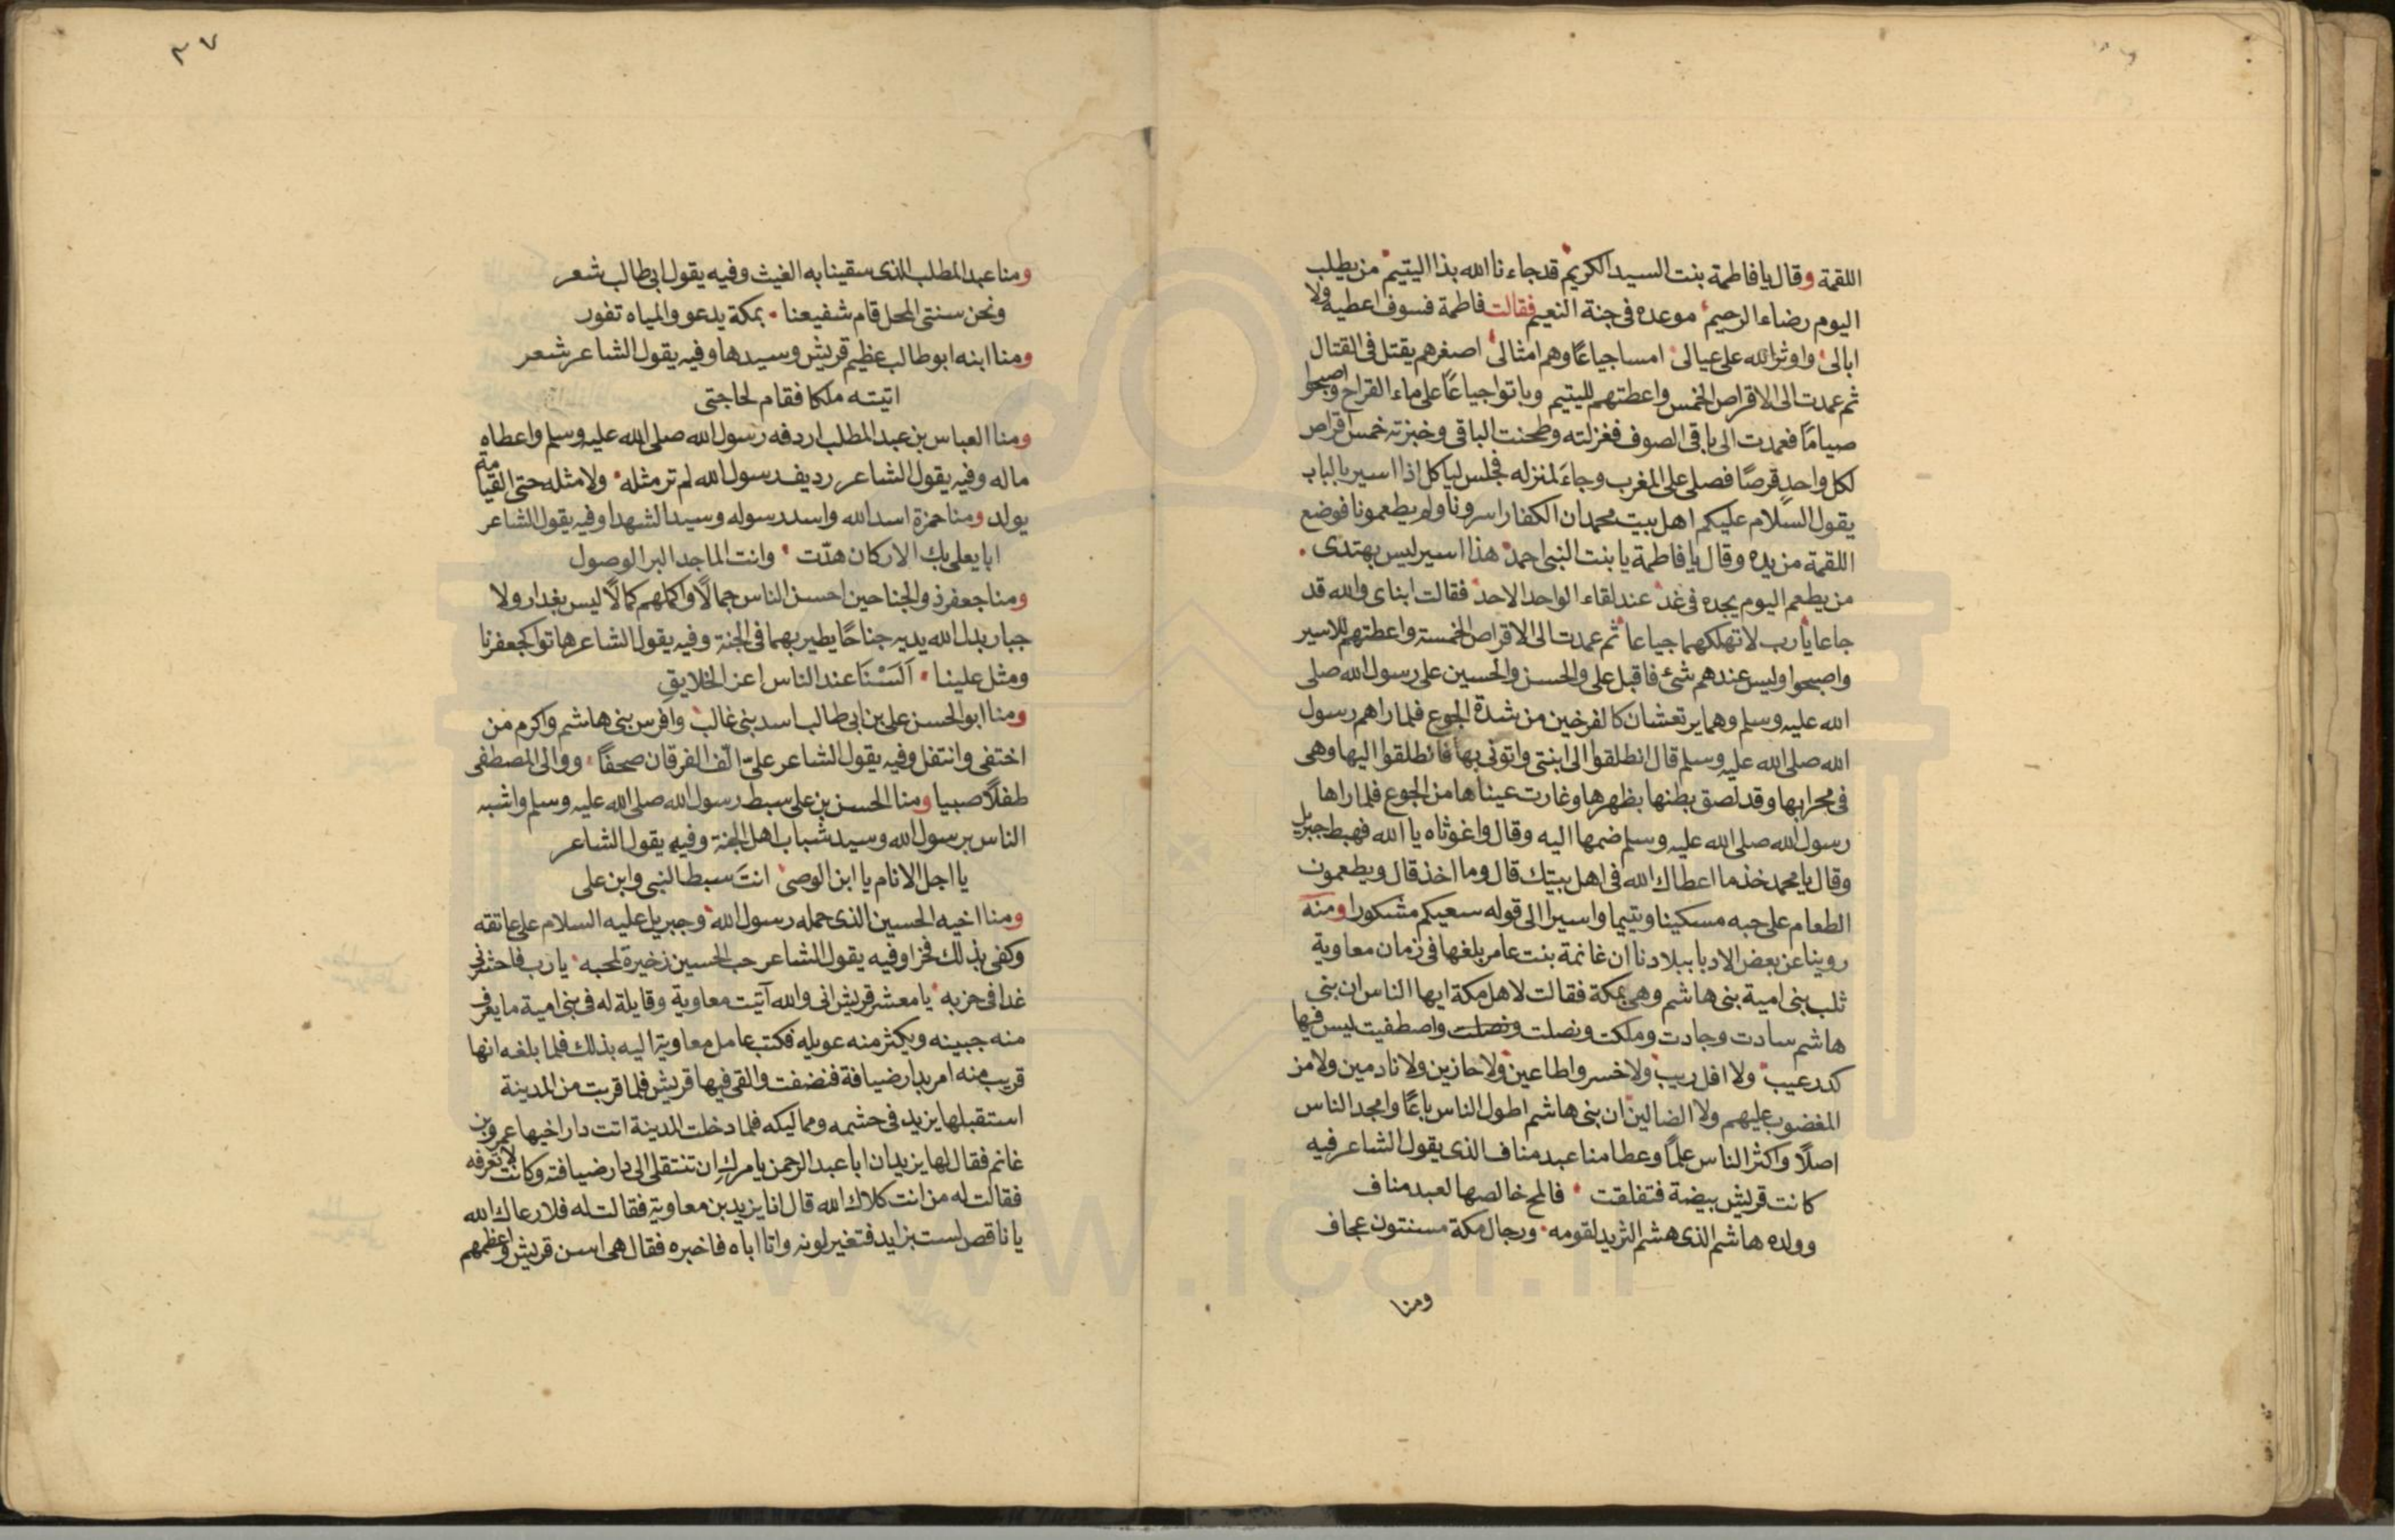 اللقمة وقال يا فاطمة بنت السيد الكريم قد جاءنا الله بذا اليتيم من يطلب
اليوم رضاء الرحيم موعده فى جنة النعيم فقالت فاطمة فسوف اعطيه ولا
ابالى واوثر الله على عيالى امسا جياعًا وهم امثالى اصغرهم يقتل فى القتال
ثم عمدت الى الاقراص الخمس واعطتهم لليتيم وباتوا جياعًا على ماء القراح واصبحوا
صيامًا فعمدت الى باقى الصوف فغزلته وطحنت الباقى وخبزته خمس اقراص
لكل واحدٍ قرصًا فصلى على المغرب وجاءَ لمنزله فجلس لياكل اذا اسير بالباب
يقول السلام عليكم اهل بيت محمد ان الكفار اسرونا ولم يطعمونا فوضع
اللقمة من يده وقال يا فاطمة يا بنت النبى احمد هذا اسير ليس يهتدى
من يطعم اليوم يجده فى غد عند لقاء الواحد الاحد فقالت ابناى والله قد
جاعا يا رب لا تهلكهما جياعا ثم عمدت الى الاقراص الخمسة واعطتهم للاسير
واصبحوا وليس عندهم شئ فاقبل على والحسن والحسين على رسول الله صلى
الله عليه وسلم وهما يرتعشان كالفرخين من شدة الجوع فلما راهم رسول
الله صلى الله عليه وسلم قال انطلقوا الى ابنتى واتونى بها فانطلقوا اليها وهى
فى محرابها وقد لصق بطنها بظهرها وغارت عيناها من الجوع فلما راها
رسول الله صلى الله عليه وسلم ضمها اليه وقال واغوثاه يا الله فهبط جبريل
وقال يا محمد خذ ما اعطاك الله فى اهل بيتك قال وما اخذ قال ويطعمون
الطعام على حبه مسكينا ويتيما واسيرا الى قوله سعيكم مشكورا ومنه
روينا عن بعض الادبا ببلادنا ان غانمة بنت عامر بلغها فى زمان معاوية
ثلب بنى امية بنى هاشم وهى بمكة فقالت لاهل مكة ايها الناس ان بنى
هاشم سادت وجادت وملكت ونصلت ونصلت واصطفيت ليس فيها
كدر عيب ولا افل ريب ولا خسروا طاعين ولا حازين ولا نادمين ولا من
المغضوب عليهم ولا الضالين ان بنى هاشم اطول الناس باعًا وامجد الناس
اصلًا واكثر الناس علمًا وعطا منا عبد مناف الذى يقول الشاعر فيه
كانت قريش بيضة فتفلقت فالمح خالصها لعبد مناف
وولده هاشم الذى هشم الثريد لقومه ورجال مكة مسنتون عجاف
ومنا
٣٧
ومنا عبد المطلب الذى سقينا به الغيث وفيه يقول ابى طالب شعر
ونحن سنتى المحل قام شفيعنا بمكة يدعو والمياه تفور
ومنا ابنه ابو طالب عظيم قريش وسيدها وفيه يقول الشاعر شعر
اتيته ملكا فقام لحاجتى
ومنا العباس بن عبد المطلب اردفه رسول الله صلى الله عليه وسلم واعطاه
ماله وفيه يقول الشاعر رديف رسول الله لم تر مثله ولا مثله حتى القيامة
يولد ومنا حمزة اسد الله واسد رسوله وسيد الشهدا وفيه يقول الشاعر
ابا يعلى بك الاركان هدّت وانت الماجد البر الوصول
ومنا جعفر ذو الجناحين احسن الناس جمالًا واكملهم كمالًا ليس بغدار ولا
جبار بدل الله يديه جناحًا يطير بهما فى الجنة وفيه يقول الشاعر هاتوا كجعفرنا
ومثل علينا اَلَسْنَا عند الناس اعز الخلايق
ومنا ابو الحسن على بن ابى طالب اسد بنى غالب وافرس بنى هاشم واكرم من
اختفى وانتفل وفيه يقول الشاعر علىّ الّف الفرقان صحفًا ووالى المصطفى
طفلًا صبيا ومنا الحسن بن على سبط رسول الله صلى الله عليه وسلم واشبه
الناس برسول الله وسيد شباب اهل الجنة وفيه يقول الشاعر
يا اجل الانام يا ابن الوصى انتَ سبط النبى وابن على
ومنا اخيه الحسين الذى حمله رسول الله وجبريل عليه السلام على عاتقه
وكفى بذلك فخرا وفيه يقول الشاعر حب الحسين ذخيرة لمحبه يا رب فاحشرنى
غدا فى حزبه يا معشر قريش انى والله آتيت معاوية وقايلة له فى بنى امية ما يعرق
منه جبينه ويكثر منه عويله فكتب عامل معاوية اليه بذلك فلما بلغه انها
قريب منه امر بدار ضيافة فنضفت والقى فيها قريش فلما قربت من المدينة
استقبلها يزيد فى حشمه ومماليكه فلما دخلت المدينة اتت دار اخيها عمرو بن
غانم فقال لها يزيد ان ابا عبد الرحمن يامرك ان تنتقلى الى دار ضيافته وكانت لا تعرفه
فقالت له من انت كلاك الله قال انا يزيد بن معاوية فقالت له فلا رعاك الله
يا ناقص لست بزايد فتغير لونه واتا اباه فاخبره فقال هى اسن قريش واعظمهم